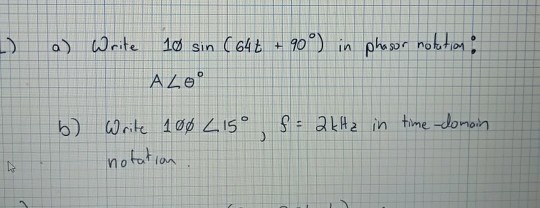 a) Write 10 sin (64t + 90°) in phasor notation:
A∠θ°
b) Write 100∠15°, f = 2kHz in time-domain
notation.